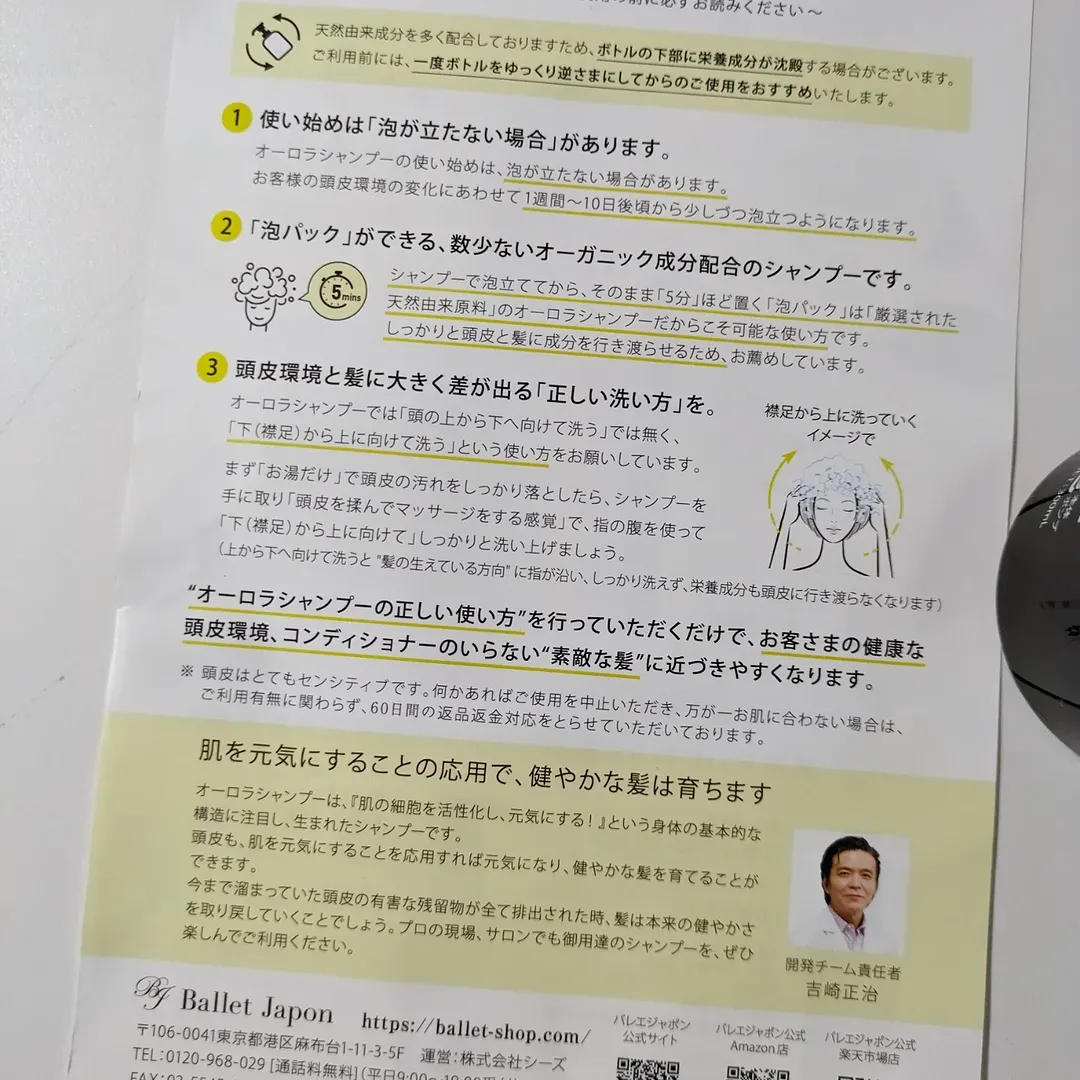 の前に必ずお読みください〜
天然由来成分を多く配合しておりますため、ボトルの下部に栄養成分が沈殿する場合がございます。
ご利用前には、一度ボトルをゆっくり逆さまにしてからのご使用をおすすめいたします。
1 使い始めは「泡が立たない場合」があります。
オーロラシャンプーの使い始めは、泡が立たない場合があります。
お客様の頭皮環境の変化にあわせて1週間〜10日後頃から少しづつ泡立つようになります。
2 「泡パック」ができる、数少ないオーガニック成分配合のシャンプーです。
5mins
シャンプーで泡立ててから、そのまま「5分」ほど置く「泡パック」は「厳選された
天然由来原料」のオーロラシャンプーだからこそ可能な使い方です。
しっかりと頭皮と髪に成分を行き渡らせるため、お薦めしています。
3 頭皮環境と髪に大きく差が出る「正しい洗い方」を。
オーロラシャンプーでは「頭の上から下へ向けて洗う」では無く、
「下（襟足）から上に向けて洗う」という使い方をお願いしています。
まず「お湯だけ」で頭皮の汚れをしっかり落としたら、シャンプーを
手に取り「頭皮を揉んでマッサージをする感覚」で、指の腹を使って
「下（襟足）から上に向けて」しっかりと洗い上げましょう。
（上から下へ向けて洗うと "髪の生えている方向" に指が沿い、しっかり洗えず、栄養成分も頭皮に行き渡らなくなります）
襟足から上に洗っていく
イメージで
“オーロラシャンプーの正しい使い方”を行っていただくだけで、お客さまの健康な
頭皮環境、コンディショナーのいらない“素敵な髪”に近づきやすくなります。
※ 頭皮はとてもセンシティブです。何かあればご使用を中止いただき、万が一お肌に合わない場合は、
ご利用有無に関わらず、60日間の返品返金対応をとらせていただいております。
肌を元気にすることの応用で、健やかな髪は育ちます
オーロラシャンプーは、『肌の細胞を活性化し、元気にする！』という身体の基本的な
構造に注目し、生まれたシャンプーです。
頭皮も、肌を元気にすることを応用すれば元気になり、健やかな髪を育てることが
できます。
今まで溜まっていた頭皮の有害な残留物が全て排出された時、髪は本来の健やかさ
を取り戻していくことでしょう。プロの現場、サロンでも御用達のシャンプーを、ぜひ
楽しんでご利用ください。
開発チーム責任者
吉崎正治
BJ Ballet Japon https://ballet-shop.com/
〒106-0041東京都港区麻布台1-11-3-5F 運営：株式会社シーズ
TEL：0120-968-029 [通話料無料]
バレエジャポン
公式サイト
バレエジャポン公式
Amazon店
バレエジャポン公式
楽天市場店